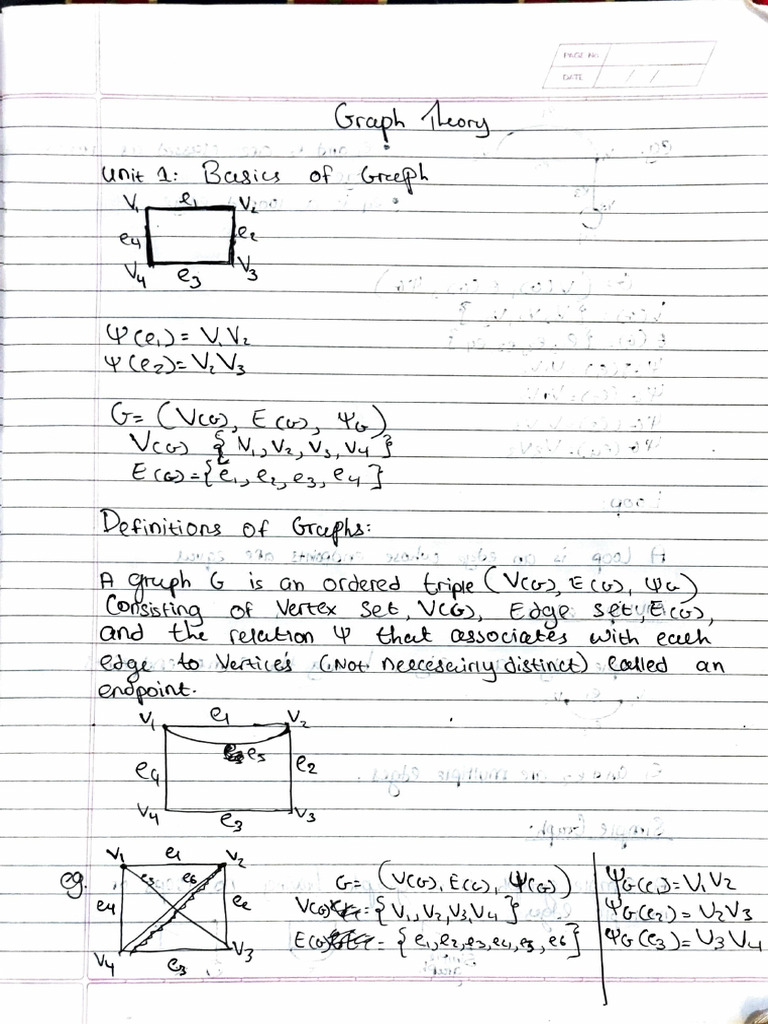 PAGE No.
DATE / /
Graph Theory
Unit 1: Basics of Graph
V₁ e₁ V₂
e₄ e₂
V₄ e₃ V₃
Ψ(e₁) = V₁V₂
Ψ(e₂) = V₂V₃
G = (V(G), E(G), Ψ_G)
V(G) {V₁, V₂, V₃, V₄}
E(G) = {e₁, e₂, e₃, e₄}
Definitions of Graphs:
A graph G is an ordered triple (V(G), E(G), Ψ_G)
Consisting of Vertex set, V(G), Edge set, E(G),
and the relation Ψ that associates with each
edge to vertices (Not neccesairly distinct) called an
endpoint.
V₁ e₁ V₂
e₅
e₄ e₂
V₄ e₃ V₃
eg. V₁ e₁ V₂
e₅ e₆
e₄ e₂
V₄ e₃ V₃
G = (V(G), E(G), Ψ(G))
V(G) = {V₁, V₂, V₃, V₄}
E(G) = {e₁, e₂, e₃, e₄, e₅, e₆}
Ψ_G(e₁) = V₁V₂
Ψ_G(e₂) = V₂V₃
Ψ_G(e₃) = V₃V₄